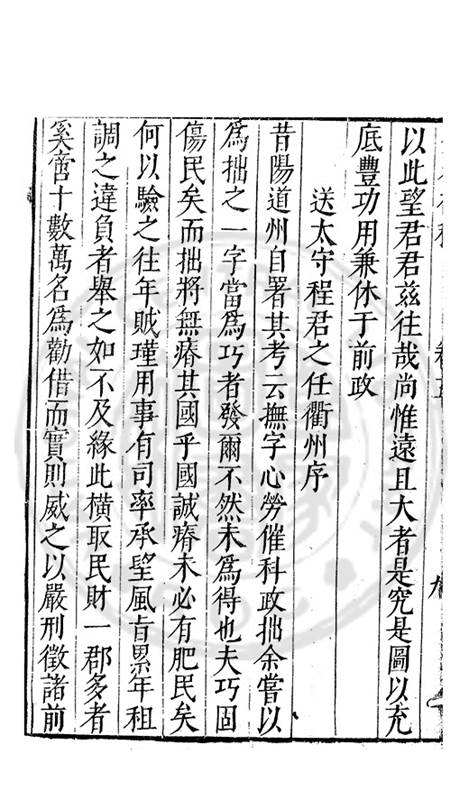 以此望君君茲往哉尚惟遠且大者是究是圖以充
底豐功用兼休于前政
送太守程君之任衢州序
昔陽道州自署其考云撫字心勞催科政拙余嘗以
爲拙之一字當爲巧者發爾不然未爲得也夫巧固
傷民矣而拙將無瘠其國乎國誠瘠未必有肥民矣
何以驗之往年賊瑾用事有司率承望風旨累年租
調之違負者舉之如不及緣此橫取民財一郡多者
奚啻十數萬名爲勸借而實則威之以嚴刑徵諸前